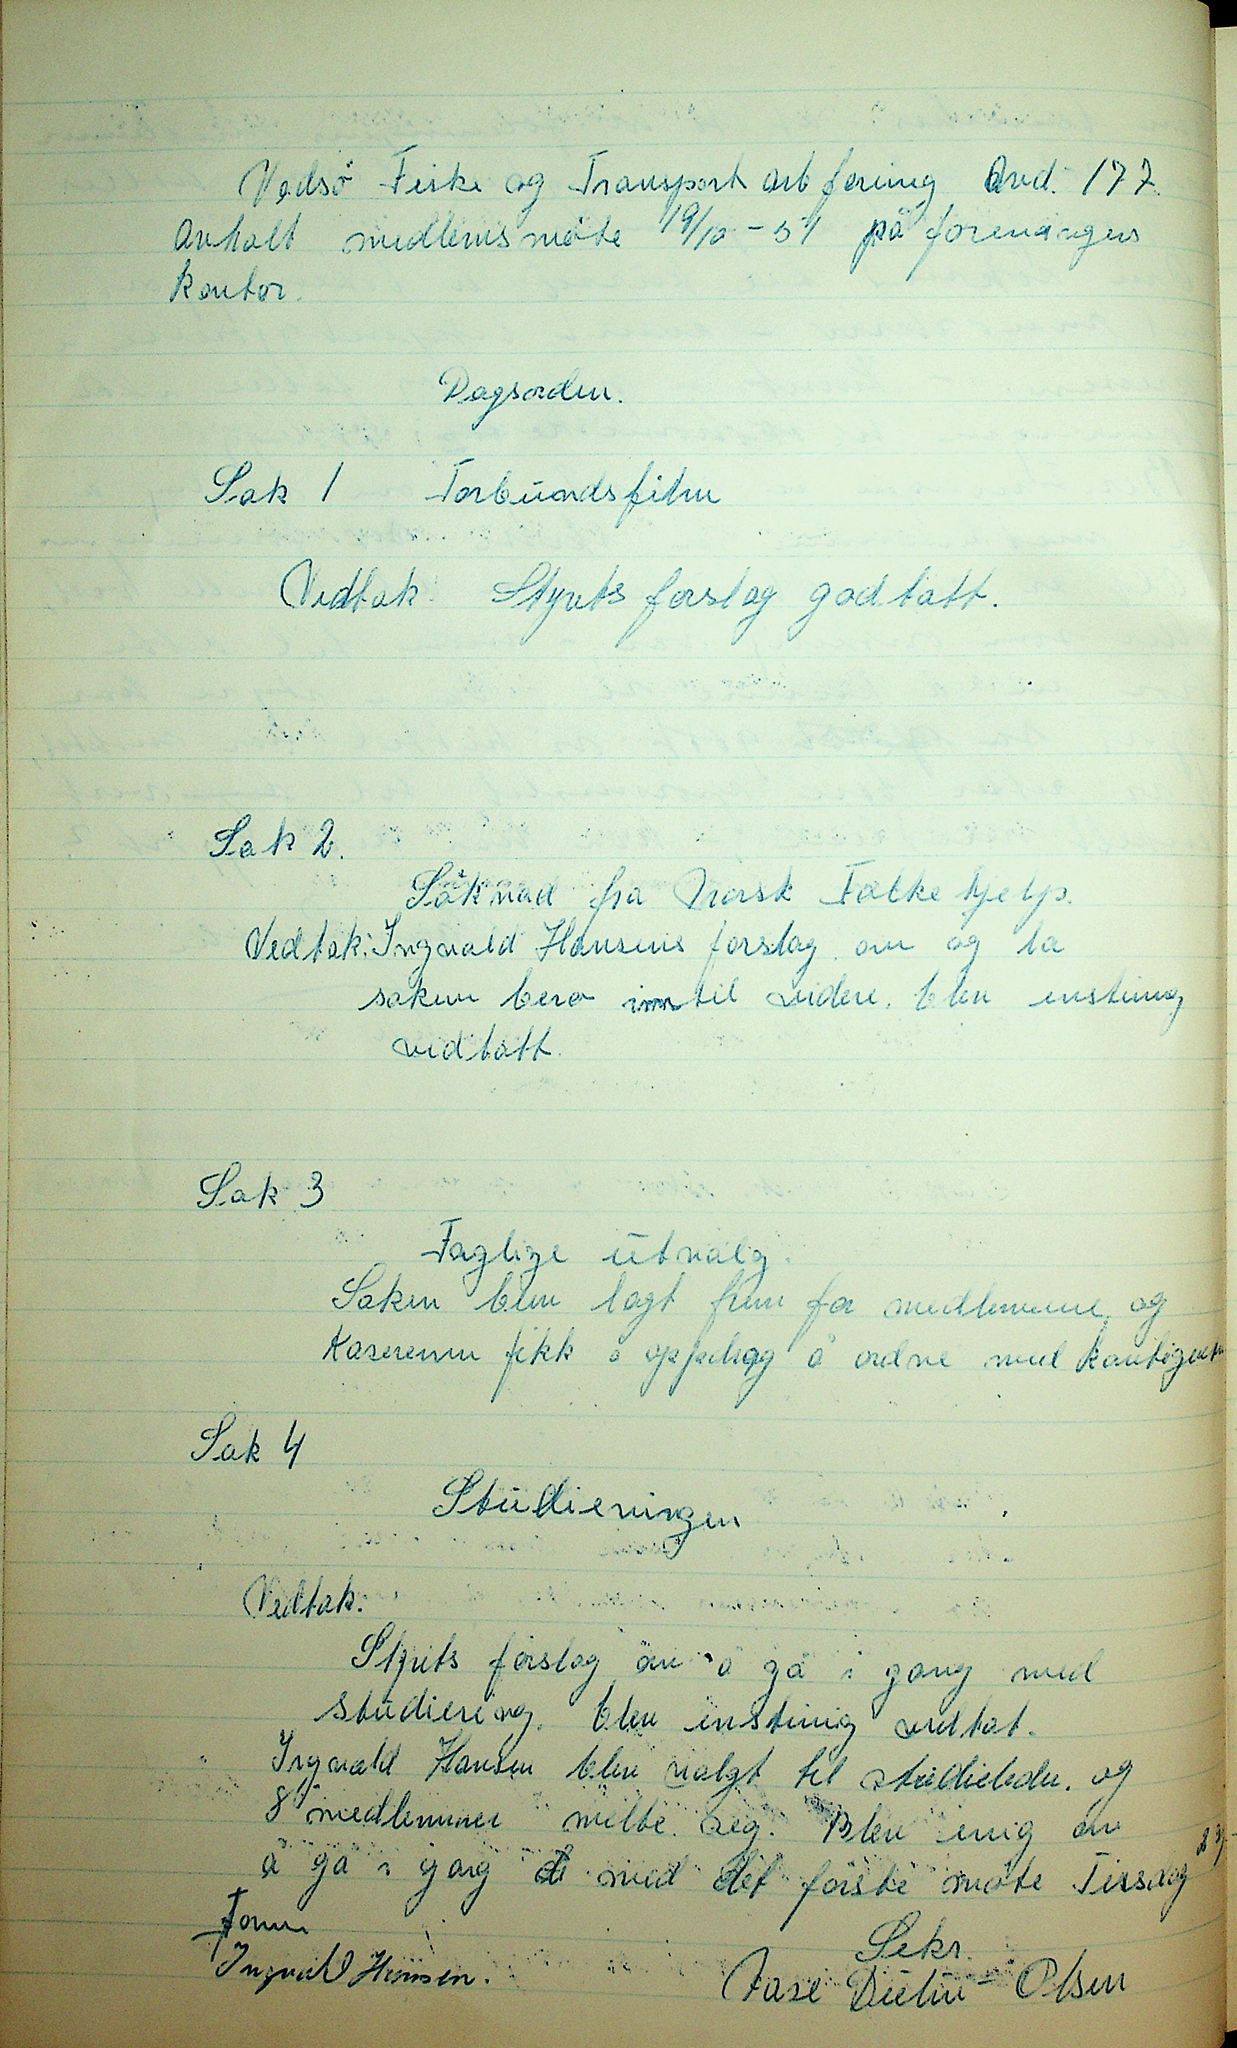 Vadsö Fiske og Transport arb forening Avd. 177.
Avholt medlemsmöte 19/10-51 på foreningens
Kontor.
Dagsorden.
Sak 1 Forbundsfilm
Vedtak Styrets forslag godtatt.
Sak 2.
Söknad fra Norsk Folkehjelp.
Vedtak: Ingvald Hansens forslag om og la
saken bero inntil videre. blev enstimig
vedtatt.
Sak 3
Faglige utvalg.
Saken blev lagt frem for medlemene, og
Kasereren fikk i oppdrag å ordne med kontigenten
Sak 4
Studieringen
Vedtak.
Styrets forslag om å gå i gang med
studiering. blev enstimig vedtat.
Ingvald Hansen blev valgt til studieleder. og
8 medlemmer meldte seg. Blev enig om
å gå i gang med det förste möte Tirsdag
Form
Ingvald Hansen.
Sekr.
Olsen